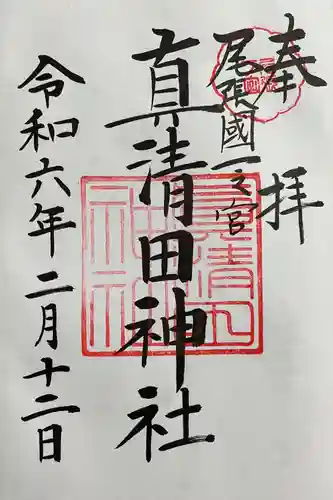 奉拝
尾張國一之宮
真清田神社
令和六年二月十二日